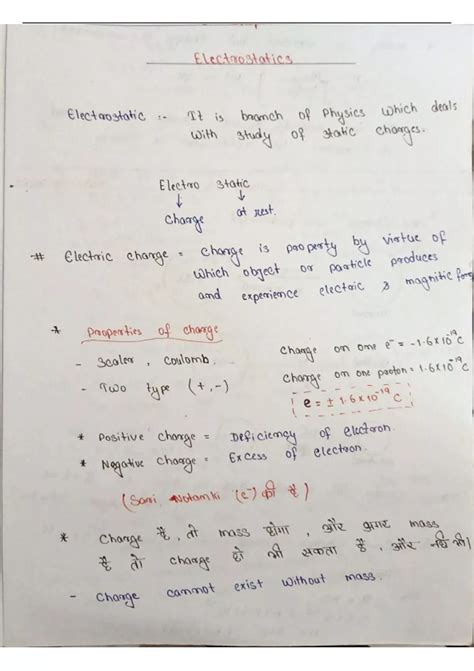 Electrostatics
Electrostatic :- It is branch of Physics which deals
with study of static charges.
Electro static
↓ ↓
Charge at rest.
# Electric charge = charge is property by virtue of
which object or particle produces
and experience electric & magnitic force
* Properties of charge
- Scaler, Coulomb.
- Two type (+,-)
Charge on one e⁻ = -1.6×10⁻¹⁹C
Charge on one proton = 1.6×10⁻¹⁹C
e = ± 1.6×10⁻¹⁹ C
* Positive charge = Deficiency of electron.
* Negative charge = Excess of electron.
(Sari Notamki (e⁻) की है)
* Charge है, तो mass होगा, और अगर mass
है तो charge हो भी सकता है, और नहीं भी।
- Charge cannot exist without mass.